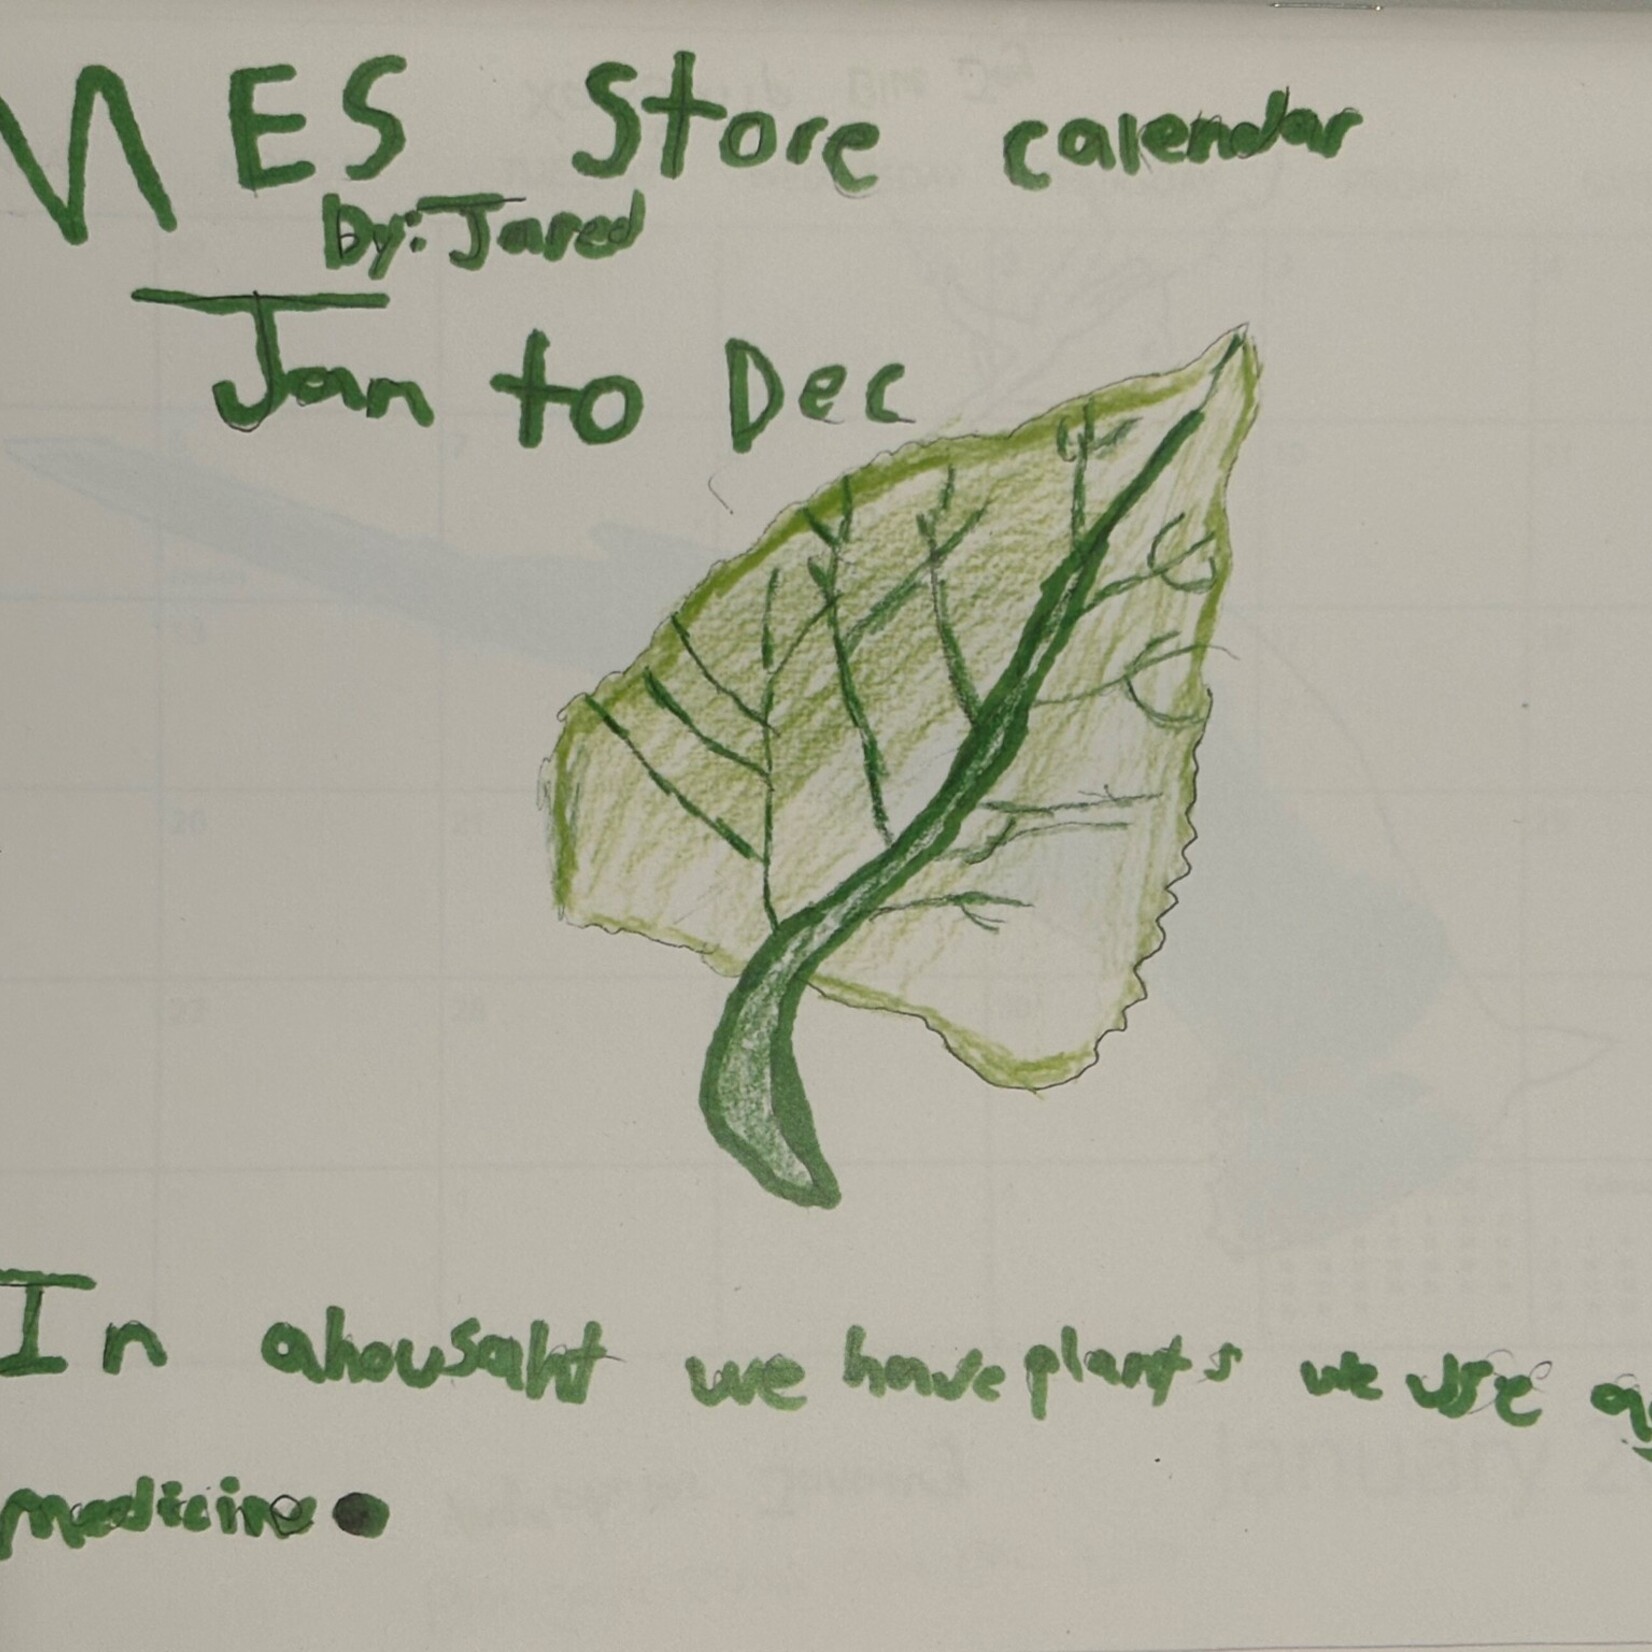 MES Store calendar
by: Jared
Jan to Dec
In ahousaht we have plants we use as
medicine.